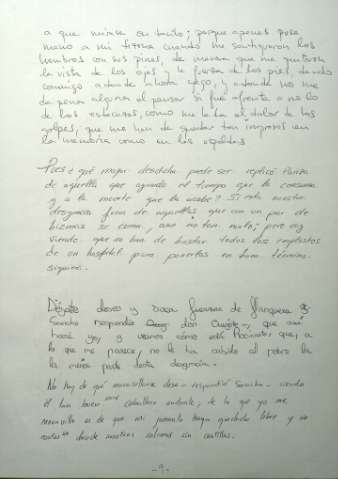 a que mirase en tanto; porque apenas puse
mano a mi tizona cuando me santiguaron los
hombros con sus pinos, de manera que me quitaron
la vista de los ojos y la fuerza de los pies, dando
conmigo adonde ahora yago, y adonde no me
da pena alguna el pensar si fue afrenta o no lo
de los estacazos, como me la da el dolor de los
golpes, que me han de quedar tan impresos en
la memoria como en las espaldas
Pues ¿qué mayor desdicha puede ser replicó Panza
de aquella que aguarda el tiempo que la consuma
y a la muerte que la acabe? Si esta nuestra
desgracia fuera de aquellas que con un par de
bizmas se curan, aun no tan malo; pero voy
viendo que no han de bastar todos los emplastos
de un hospital para ponerlas en buen término
siquiera.
Déjate deso y saca fuerzas de flaqueza
Sancho respondió don Quijote, que así
haré yo, y veamos cómo está Rocinante; que, a
lo que me parece, no le ha cabido al pobre la
menor parte desta desgracia.
No hay de qué maravillarse deso respondió Sancho siendo
él tan buen caballero andante; de lo que yo me
maravillo es de que mi jumento haya quedado libre y sin
costas donde nosotros salimos sin costillas.
-9-